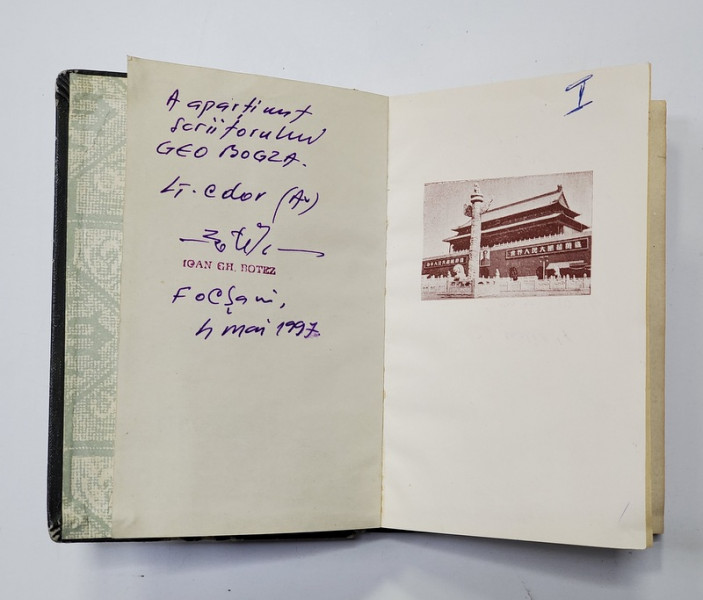 A aparținut
scriitorului
GEO BOGZA.
Lt. cdor (Av)
IOAN GH. BOTEZ
Focșani,
4 mai 1997
I
世界人民大团结萬歲